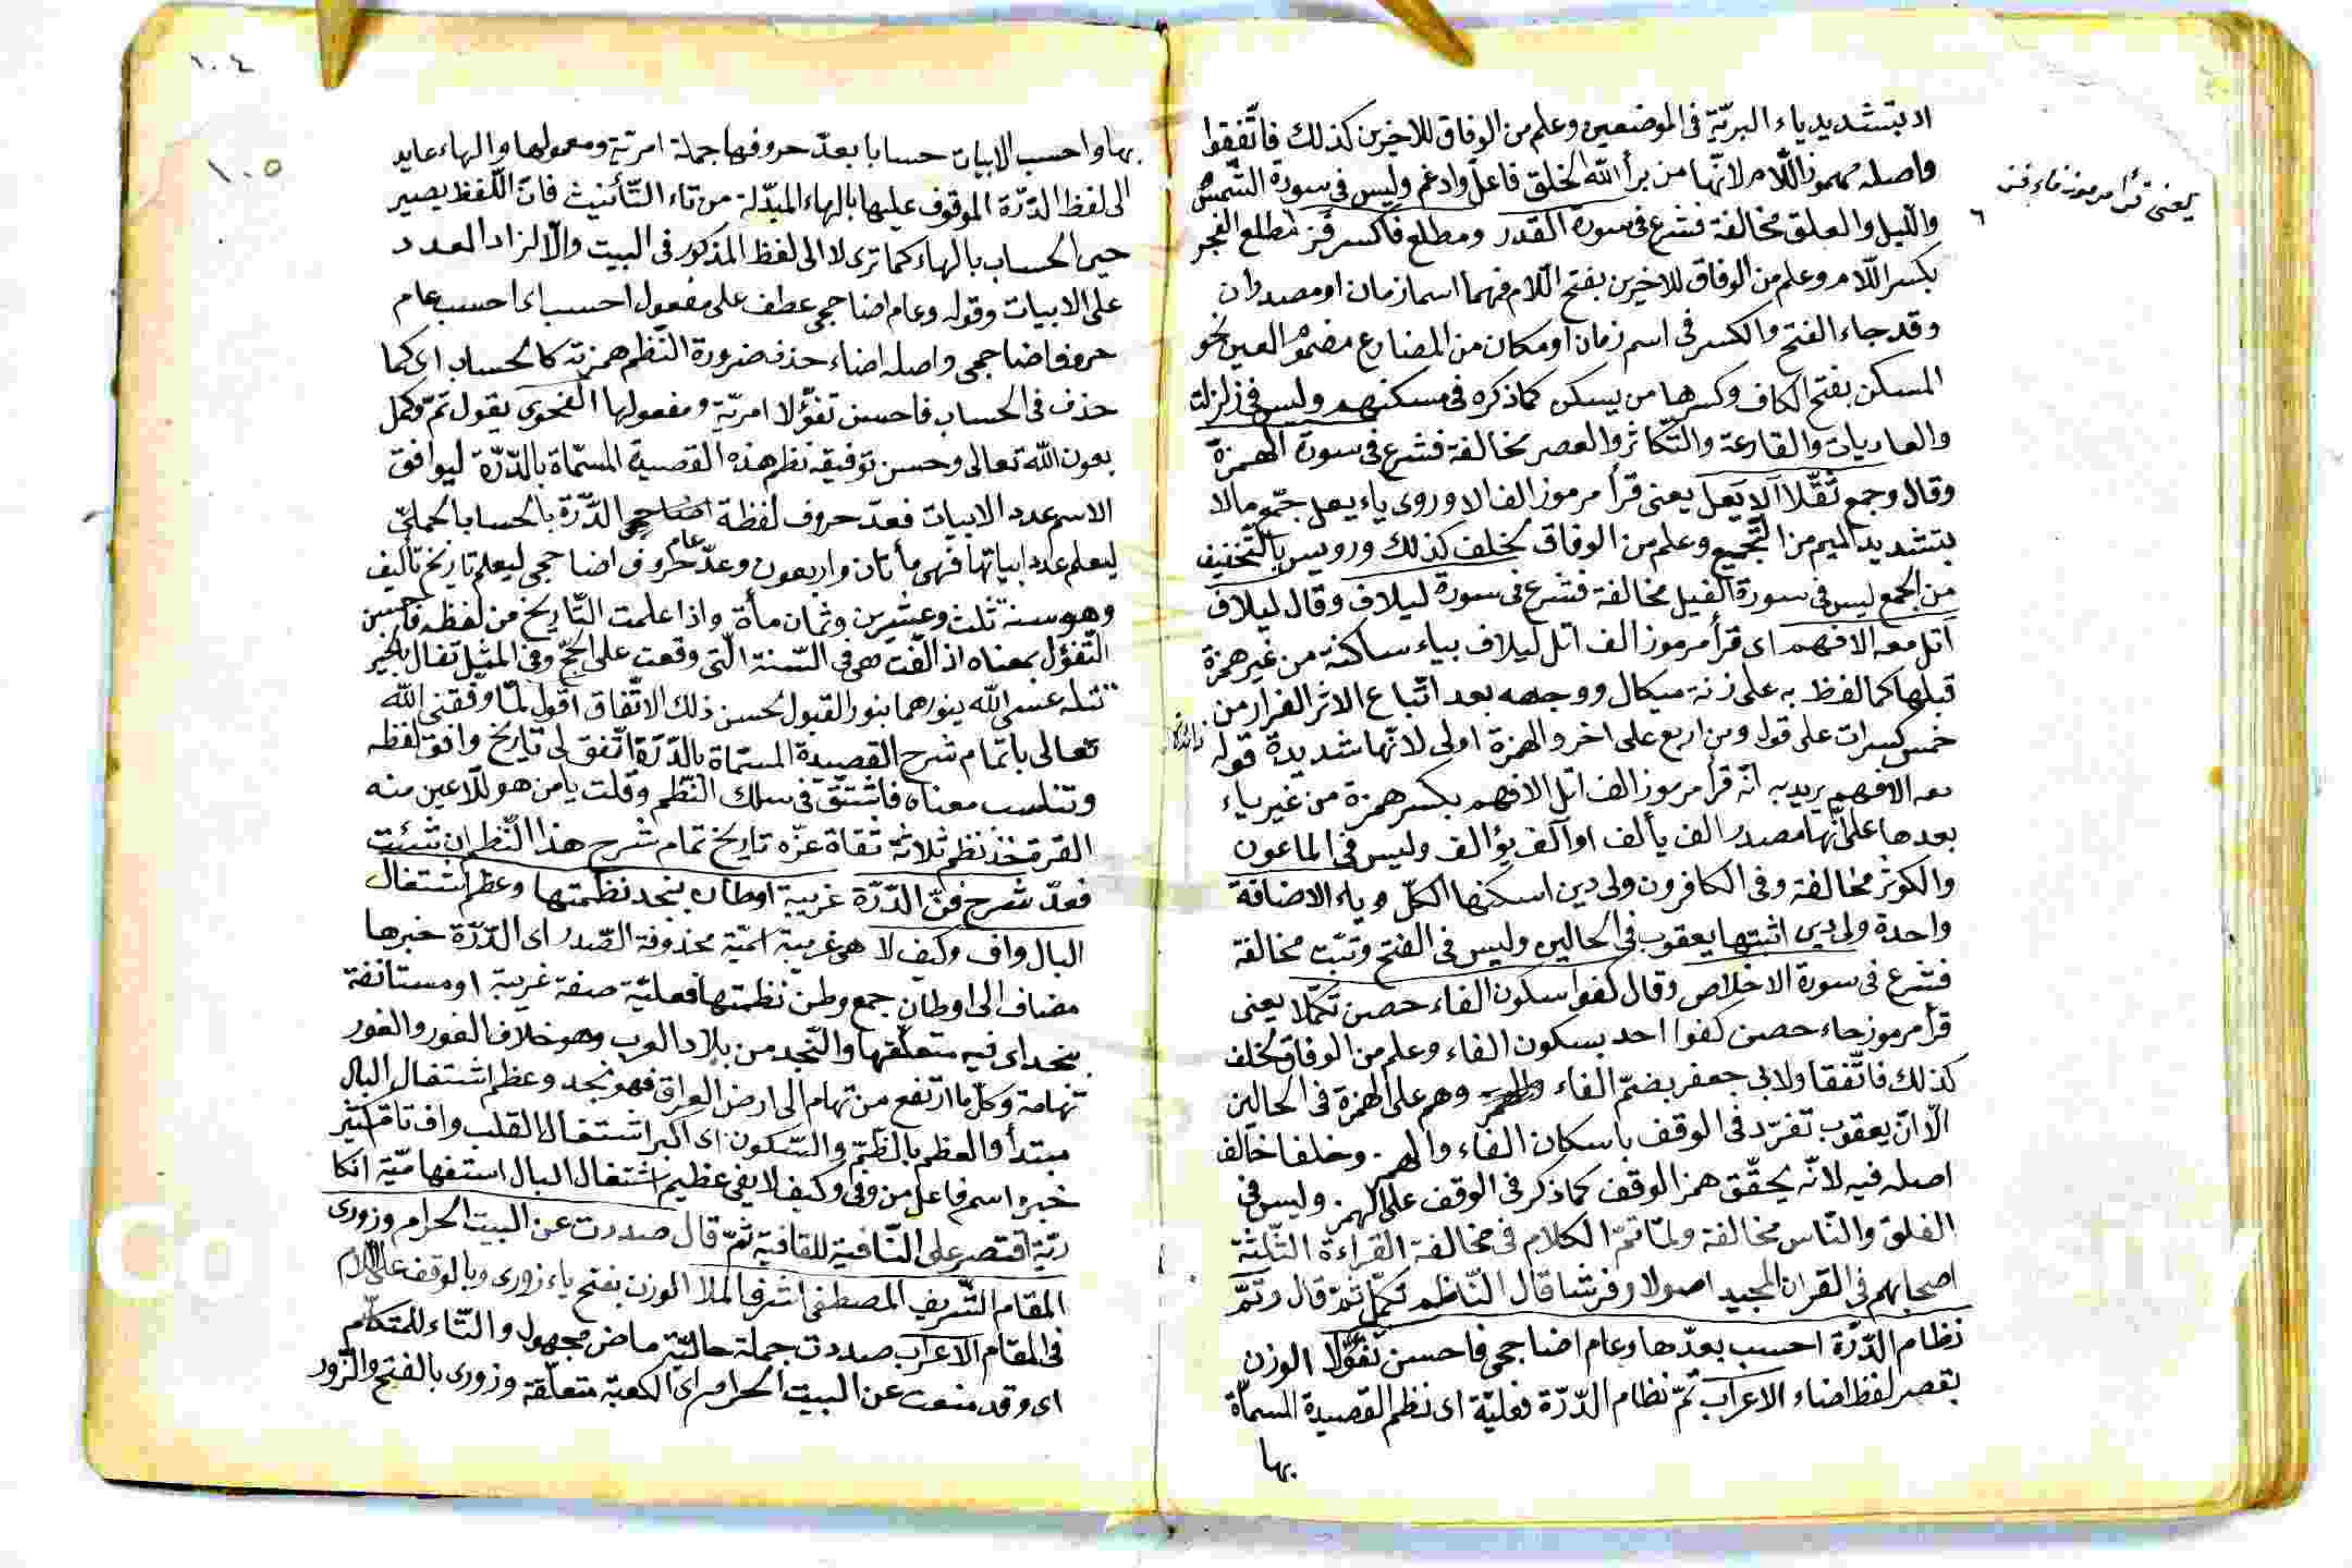 اد بتشديد ياء البريّة فى الموضعين وعلم من الوفاق للاخيرين كذلك فاتّفقوا
واصله مهموز اللّام لانّها من برأ الله الخلق فاعلّ وادغم وليس فى سورة الشّمس
واللّيل والعلق مخالفة فشرع فى سورة القدر ومطلع فاكسر فز مطلع الفجر
يعنى قرأ مرموز فاء فز
بكسر اللّام وعلم من الوفاق للاخيرين بفتح اللّام فهما اسما زمان او مصدران
وقد جاء الفتح والكسر فى اسم زمان او مكان من المضارع مضموم العين نحو
المسكن بفتح الكاف وكسرها من يسكن كما ذكره فى مسكنهم وليس فى زلزلت
والعاديات والقارعة والتّكاثر والعصر مخالفة فشرع فى سورة الهمزة
وقال وجمع ثقّلا الا يعل يعنى قرأ مرموز الف الا وروى ياء يعل جمّع مالا
بتشديد الميم من التّجميع وعلم من الوفاق لخلف كذلك ورويس بالتّخفيف
من الجمع ليس فى سورة الفيل مخالفة فشرع فى سورة ليلاف وقال ليلاف
اتل معه الافهم اى قرأ مرموز الف اتل ليلاف بياء ساكنة من غير همزة
قبلها كما لفظ به على زنة ميكال ووجهه بعد اتّباع الاثر الفرار من
خمس كسرات على قول ومن اربع على اخر والهمزة اولى لانّها شديدة قوله
معه الافهم يريد به انّه قرأ مرموز الف اتل الافهم بكسر همزة من غير ياء
بعدها على انّها مصدر الف يألف او آلف يؤالف وليس فى الماعون
والكوثر مخالفة وفى الكافرون ولى دين اسكنها الكلّ وياء الاضافة
واحدة ولى دين اثبتها يعقوب فى الحالين وليس فى الفتح وتبّت مخالفة
فشرع فى سورة الاخلاص وقال كفوا سكون الفاء حصن تكمّلا يعنى
قرأ مرموز حاء حصن كفوا احد بسكون الفاء وعلم من الوفاق لخلف
كذلك فاتّفقا ولابى جعفر بضمّ الفاء وهم على الهمزة فى الحالين
الّا انّ يعقوب تفرّد فى الوقف باسكان الفاء والهمز وخلفا خالف
اصله فيه لانّه يحقّق همز الوقف كما ذكر فى الوقف على الهمز وليس فى
الفلق والنّاس مخالفة ولمّا تمّ الكلام فى مخالفة القراءة الثّلثة
اصحابهم فى القران المجيد اصولا وفرشا قال النّاظم تكمّل ثمّ قال وتمّ
نظام الدّرّة احسب بعدّها وعام اضا حجى فاحسن تفوّلا الوزن
بقصر لفظ اضاء الاعراب تمّ نظام الدّرّة فعليّة اى نظم القصيدة المسمّاة
بها
١٠٤
١٠٥
بها واحسب الابيات حسابا بعدّ حروفها جملة امريّة ومعمولها والهاء عايد
الى لفظ الدّرّة الموقوف عليها بالهاء المبدّلة من تاء التّأنيث فانّ اللّفظ يصير
حين الحساب بالهاء كما ترى لا الى لفظ المذكور فى البيت والّا لزاد العدد
على الابيات وقوله وعام اضا حجى عطف على مفعول احسب اى احسب عام
حروف اضا حجى واصله اضاء حذف ضرورة النّظم همزته كالحساب اى كما
حذف فى الحساب فاحسن تفوّلا امريّة ومفعولها الفحوى يقول تمّ وكمل
بعون الله تعالى وحسن توفيقه نظم هذه القصيدة المسمّاة بالدّرّة ليوافق
الاسم عدد الابيات فعدّ حروف لفظة الدّرّة بالحساب الجملىّ
ليعلم عدد ابياتها فهى مأتان واربعون وعدّ حروف عام اضا حجى ليعلم تاريخ تأليف
وهو سنة ثلث وعشرين وثمان مأة واذا علمت التّاريخ من لفظه فاحسن
التّفوّل بمعناه اذ الّفت هى فى السّنة الّتى وقعت على الحجّ وفى المثيل تفال بالخير
تنله عسى الله ينوّرهما بنور القبول لحسن ذلك الاتّفاق اقول لمّا وفقنى الله
تعالى باتمام شرح القصيدة المسمّاة بالدّرّة اتّفق لى تاريخ وافق لفظه
وتناسب معناه فاشتقّ فى سلك النّظم وقلت يا من هو للاعين منه
القرة خذ نظم ثلاثة ثقاة عزّه تاريخ تمام شرح هذا النّظم ان شئت
فعدّ شرح فنّ الدّرّة غريبة اوطان بنجد نظمتها وعظم اشتغال
البال واف وكيف لا هى غريبة اسميّة محذوفة الصّدر اى الدّرّة خبرها
مضاف الى اوطان جمع وطن نظمتها فعليّة صفة غريبة او مستأنفة
بنجد اى فيه متعلّقها والنّجد من بلاد العرب وهو خلاف الغور والغور
تهامة وكلّ ما ارتفع من تهام الى ارض العراق فهو نجد وعظم اشتغال البال
مبتدأ والعظم بالضّمّ والسّكون اى اكبر اشتغال القلب واف تامّ كثير
خبره اسم فاعل من وفى وكيف لا يفى عظيم اشتغال البال استفهاميّة انكا
ريّة اقتصر على النّافية للقافية ثمّ قال صددت عن البيت الحرام وزورى
المقام الشّريف المصطفى اشرف الملا الوزن بفتح ياء زورى وبالوقف على اللام
فى المقام الاعراب صددت جملة حاليّة ماض مجهول والتّاء للمتكلّم
اى وقد منعت عن البيت الحرام اى الكعبة متعلّقة وزورى بالفتح والزّور